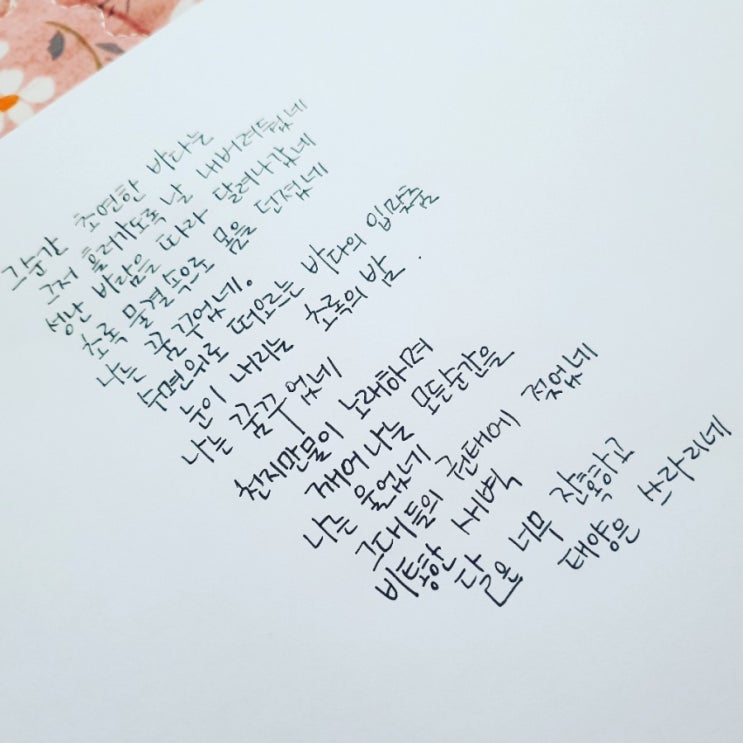 그순간 초연한 바다는
그저 흘러가도록 날 내버려두었네
성난 바람을 따라 달려나갔네
초록 물결 속으로 몸을 던졌네
나는 꿈꾸었네.
수면위로 떠오르는 바다의 입맞춤
눈이 내리는 초록의 밤.
나는 꿈꾸었네
천지만물이 노래하며
깨어나는 모든순간을
나는 울었네
그대들의 권태에 젖었네
비통한 새벽
달은 너무 잔혹하고 태양은 쓰라리네